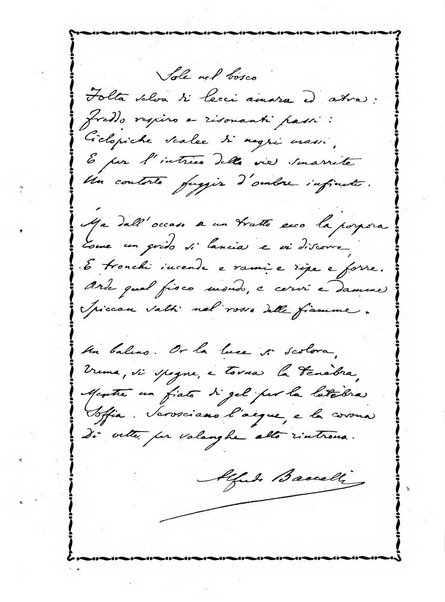 Sole nel bosco
Folta selva di lecci amara ed atra:
Freddo respiro e risonanti passi:
Ciclopiche scalee di negri massi,
E per l'intrico delle vie smarrite
Un contorto fuggir d'ombre infinite.
Ma dall'occaso a un tratto ecco la porpora
Come un grido si lancia e vi discorre,
E tronchi incende e rami e ripe e forre.
Arde qual fioco mondo, e cervi e damme
Spiccan salti nel rosso delle fiamme.
Un baleno. Or la luce si scolora,
Trema, si spegne, e torna la tenèbra,
Mentre un fiato di gel per la latèbra
Soffia. Scrosciano l'acque, e la corona
Di vette per valanghe alto rintrona.
Alfredo Baccelli